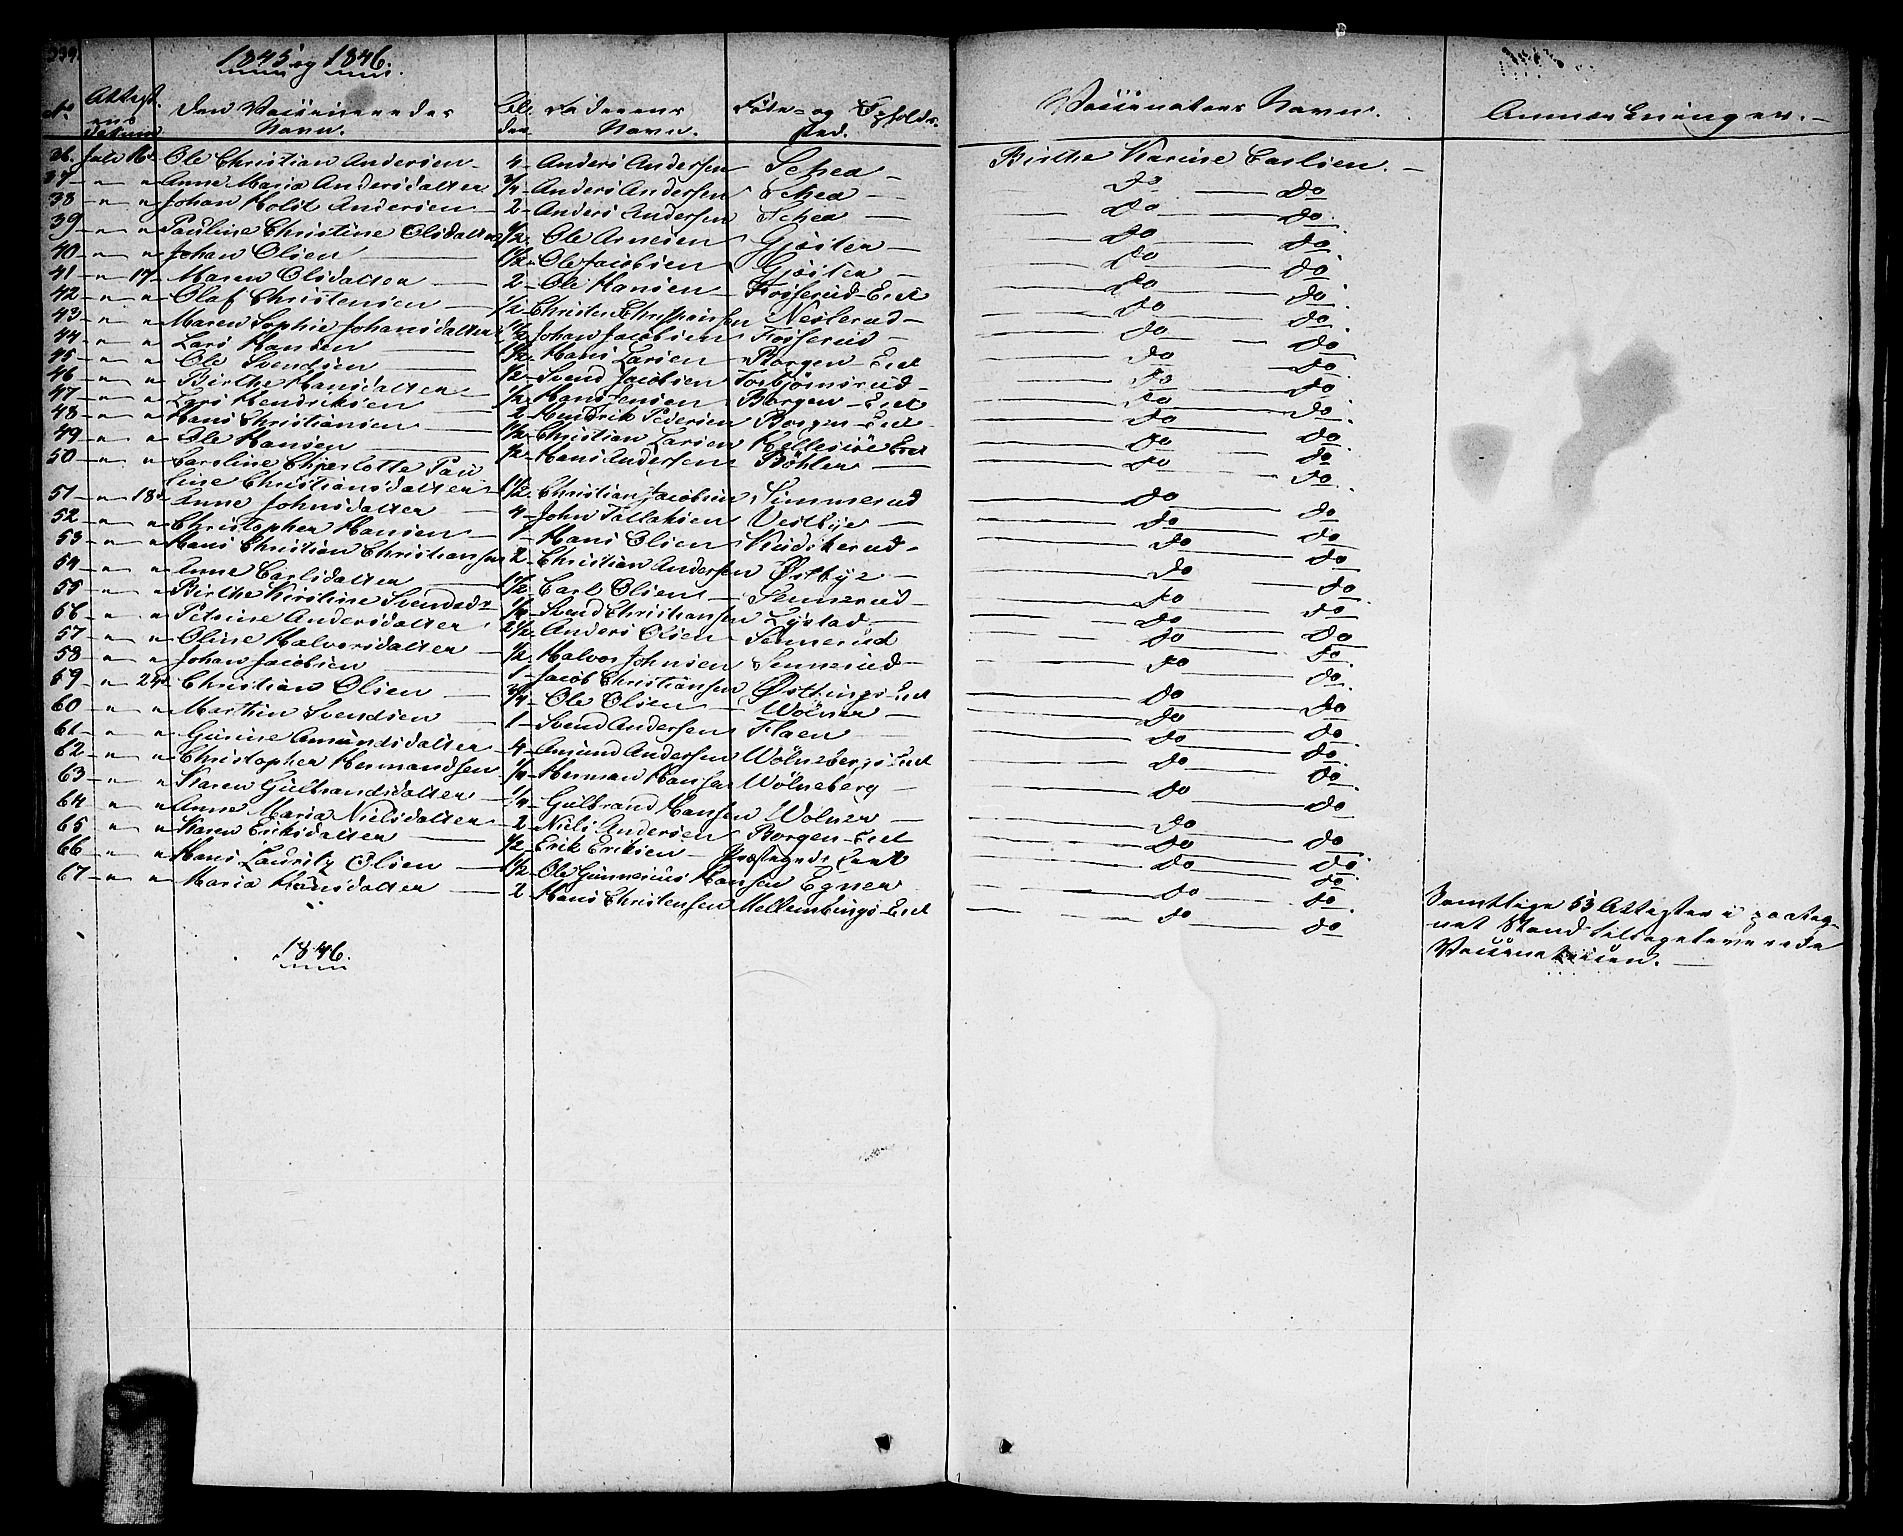 1845 og 1846.
No Attest. ens Datum Den Vaccineredes Navn. Al- der. Faderens Navn. Føde- og Opholds- sted. Vaccinateurs Navn. Anmærkninger.
36. Juli 16 Ole Christian Andersen 4 Anders Andersen Schea Birthe Karine Carlsen.
37 " " Anne Maria Andersdatter Anders Andersen Schea do do
38 " " Johan Holst Andersen 2 Anders Andersen Schea do do
39 " " Pauline Christine Olsdatter 1/2 Ole Arnesen Gjøsten do do
40 " " Johan Olsen 1/2 Ole Jacobsen Gjøsten do do
41 " 17 Maren Olsdatter 2 Ole Hansen Fosserud Eiet do do
42 " " Olaf Christensen 1/2 Christen Neslerud do do
43 " " Maren Sophie Johansdatter 1/2 Johan Jacobsen Fosserud do do
44 " " Lars Hansen 1/2 Hans Larsen Borgen Eiet do do
45 " " Ole Svendsen 1/2 Svend Jacobsen Torbjörnsrud do do
46 " " Birthe Hansdatter 1/2 Hans Jensen Borgen Eiet do do
47 " " Lars Hendriksen 2 Hendrik Pedersen Borgen Eiet do do
48 " " Hans Christiansen 1/2 Christian Larsen Eiet do do
49 " " Ole Hansen 1/2 Hans Andersen Böhler do do
50 " " Caroline Charlotte Pau
line Christiansdatter 1 1/2 Christian Jacobsen Simmerud do do
51 " 18 Anne Johnsdatter 4 John Tollaksen Vestbye do do
52 " " Christopher Hansen 1 Hans Olsen do do
53 " " Hans Christian Christiansen 2 Christian Andersen Østbye do do
54 " " Anne Carlsdatter 1/2 Carl Olsen Sennerud do do
55 " " Birthe Kirstine Svendsd. Svend Christiansen do do
56 " " Petrine Andersdatter 2 1/2 Anders Olsen Sennerud do do
57 " " Oline Halvorsdatter 1/2 Halvor Johnsen Sennerud do do
58 " " Johan Jacobsen 1 Jacob Christiansen Eiet do do
59 " 24 Christian Olsen Ole Olsen Wölner do do
60 " " Martin Svendsen 1 Svend Andersen Flaen do do
61 " " Gurine Amundsdatter 4 Amund Andersen Wölnebergs Eiet do do
62 " " Christopher Hermandsen Herman Hansen Wölneberg do do
63 " " Karen Gulbrandsdatter Gulbrand Hansen Wölner do do
64 " " Anne Maria Nielsdatter 2 Niels Andersen Borgen Eiet do do
65 " " Karen Eriksdatter 1/2 Erik Eriksen do do
66 " " Hans Lauritz Olsen 1 1/2 Ole Gunnerius Hansen Egner do do
67 " " Maria Hansdatter 2 Hans Christensen Eiet do do
Samtlige 53 Attester i paateg-
net Stand tilbageleverede
Vaccinatricen.
1846.